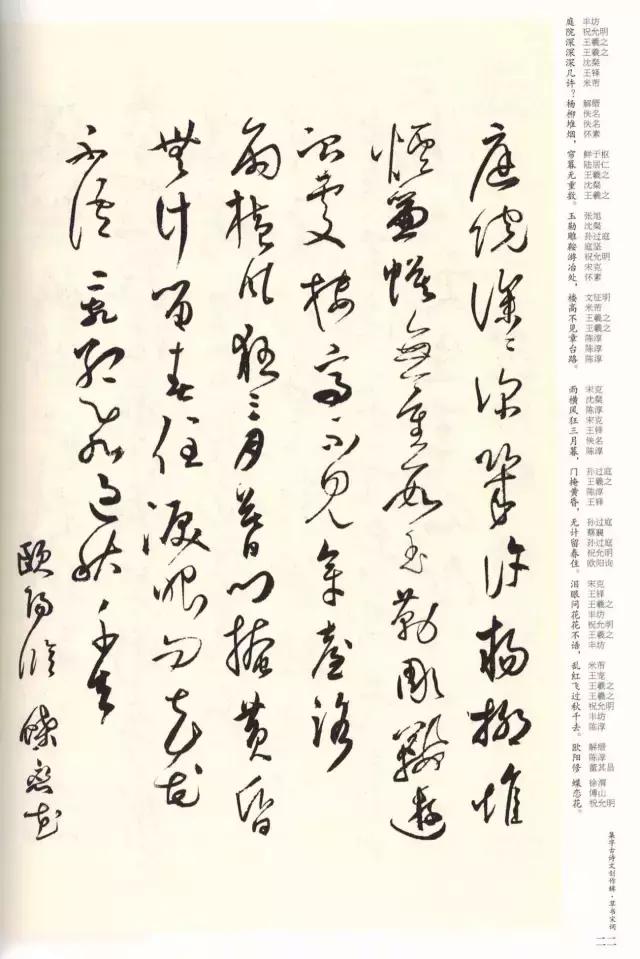 丰坊 祝允明 王羲之 王羲之 沈粲 王铎 米芾 解缙 佚名 佚名 怀素 鲜于枢 陆居仁 王羲之 沈粲 王羲之 张旭 沈粲 孙过庭 庭坚 祝允明 宋克 怀素 文征明 米芾 王羲之 王羲之 陈淳 陈淳 陈淳 宋克 沈粲 陈淳 宋克 王铎 佚名 陈淳 孙过庭 王羲之 陈淳 王铎 孙过庭 蔡襄 孙过庭 祝允明 欧阳询 宋克 王铎 王羲之 丰坊 祝允明 王羲之 丰坊 米芾 王宠 王羲之 王羲之 祝允明 丰坊 陈淳 解缙 陈淳 董其昌 徐渭 傅山 祝允明
庭院深深深几许？杨柳堆烟，帘幕无重数。玉勒雕鞍游冶处，楼高不见章台路。雨横风狂三月暮，门掩黄昏，无计留春住。泪眼问花花不语，乱红飞过秋千去。欧阳修 蝶恋花。
集字古诗文创作辑·草书宋词
二二
庭院深〻深幾許楊柳堆
煙簾幙無重数玉勒雕鞍遊
冶處樓高不見章臺路
雨橫風狂三月暮門掩黃昏
無計留春住淚眼問花花
不語亂紅飛過秋千去
歐陽修 蝶戀花